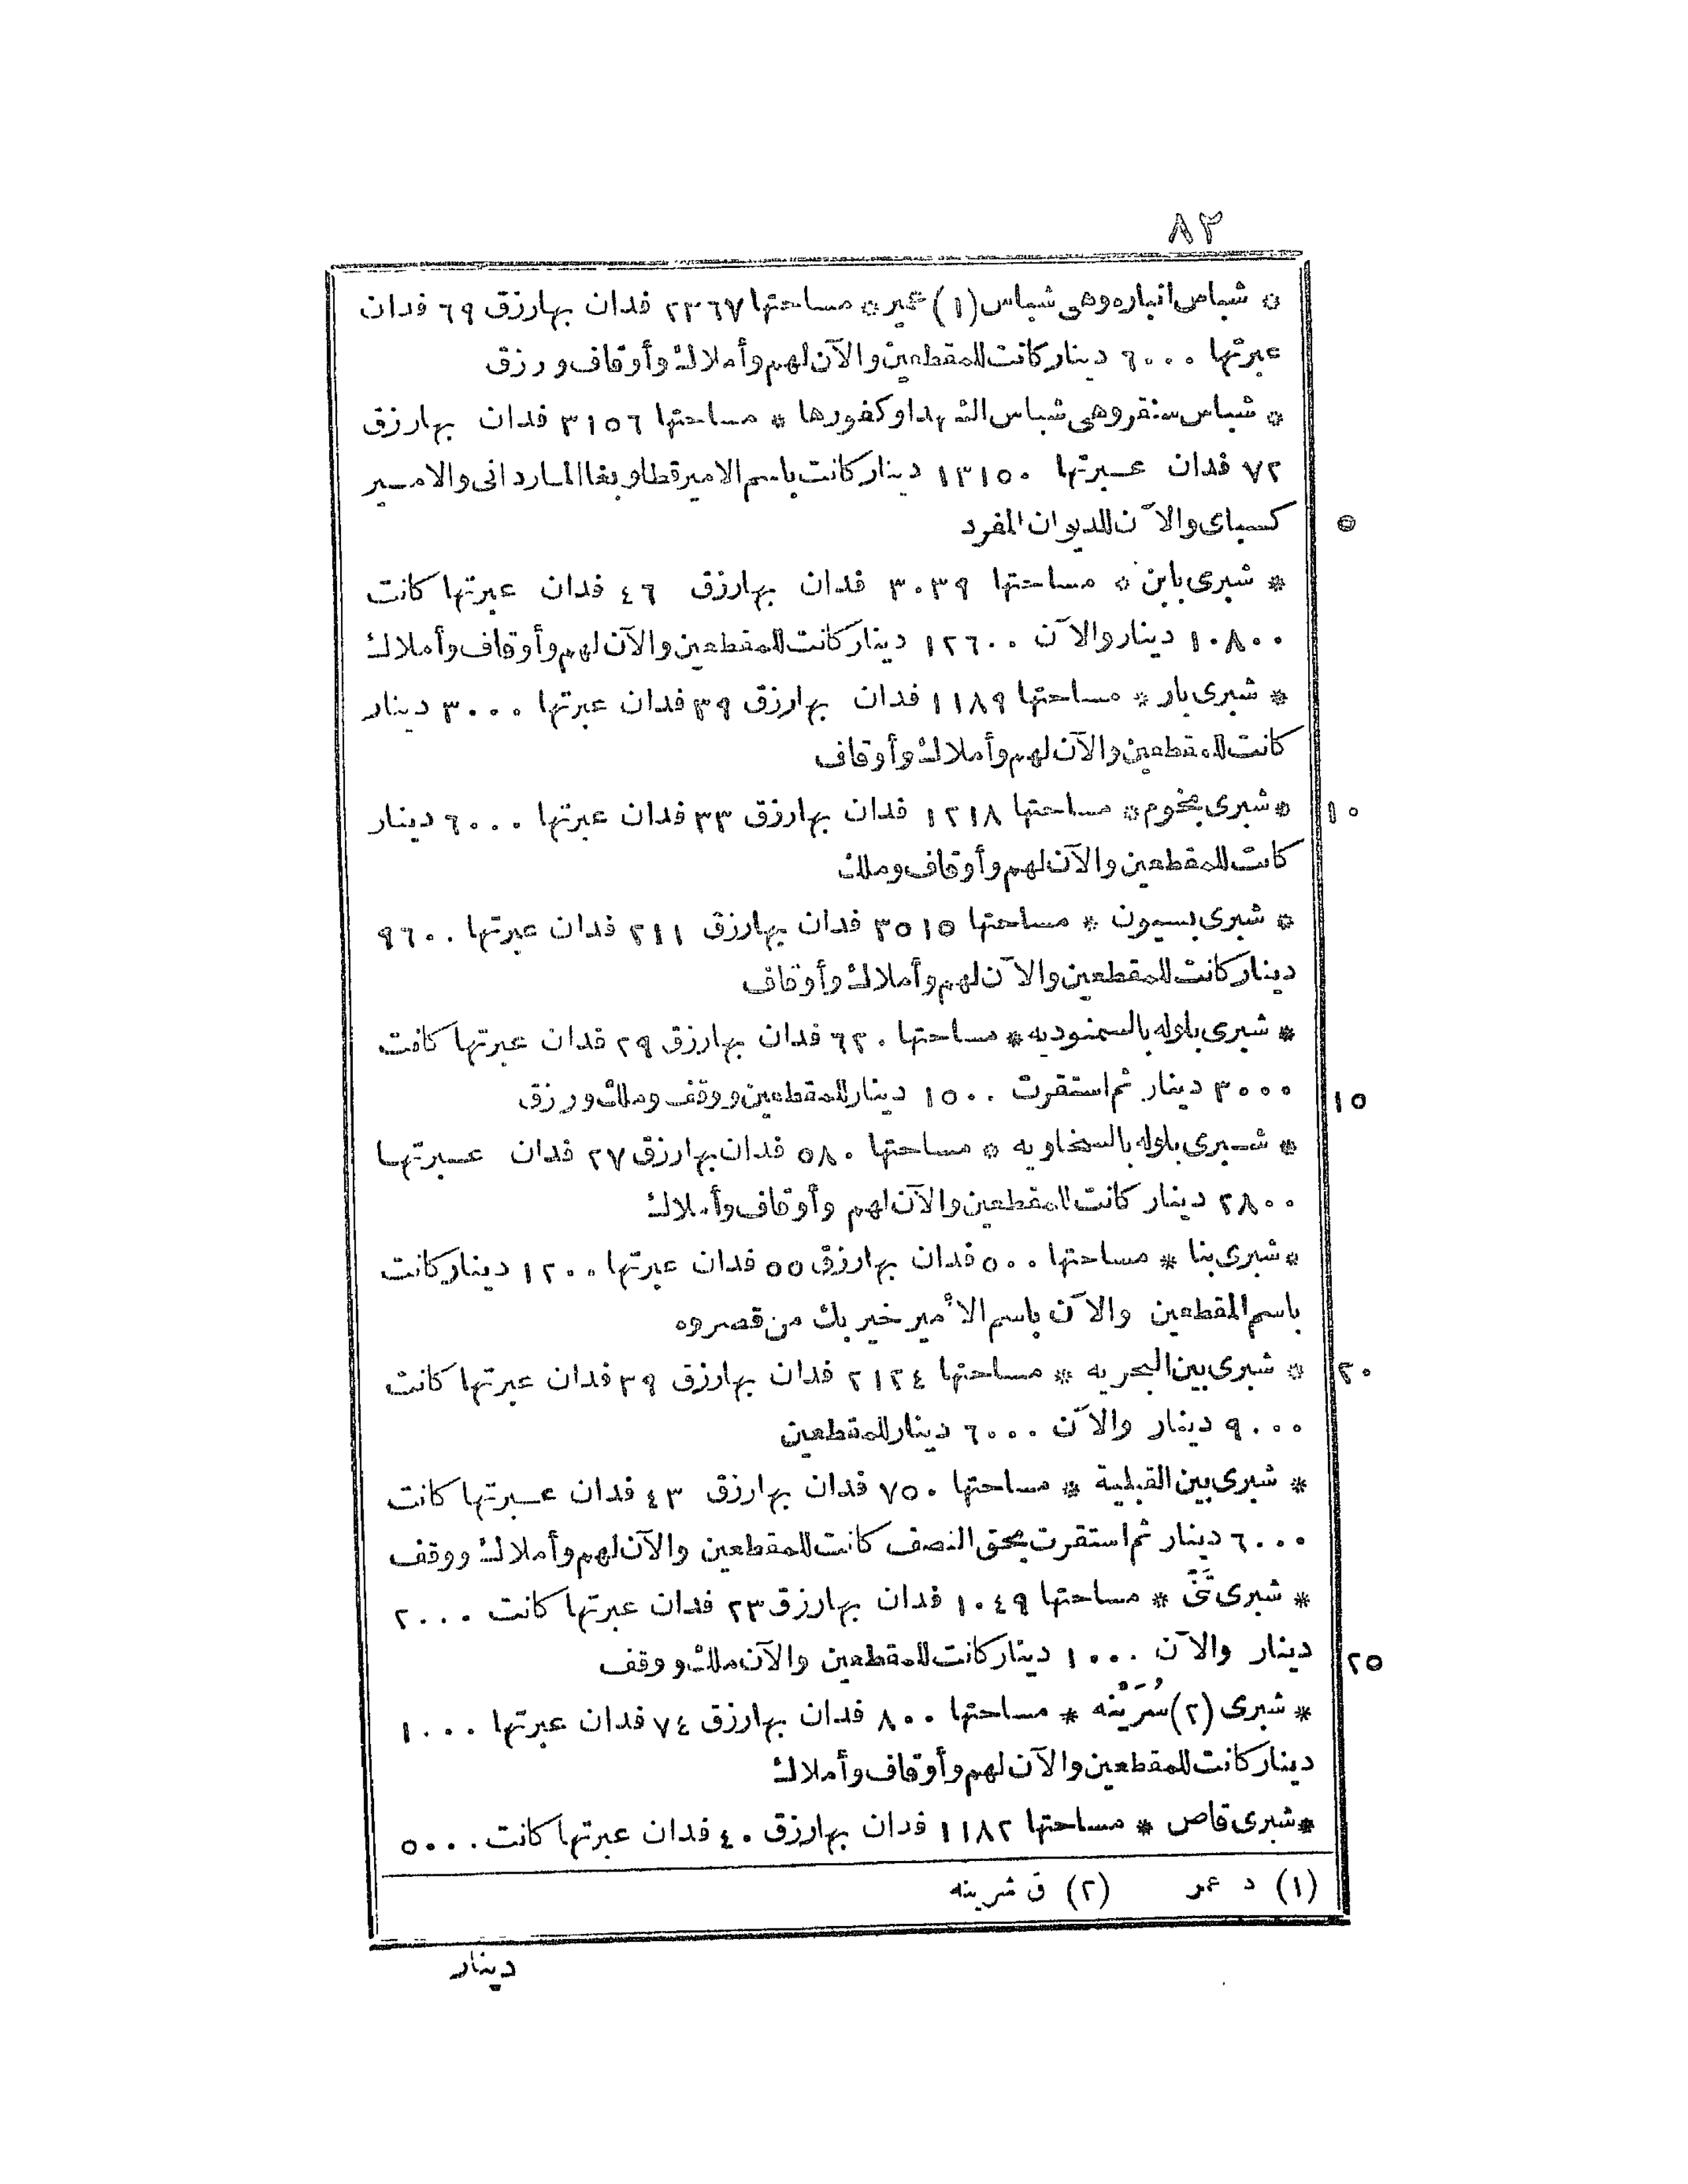 ٨٢
* شباس انباره وهى شباس (١) عمير * مساحتها ٢٣٦٧ فدان بها رزق ٦٩ فدان
عبرتها ٦٠٠٠ دينار كانت للمقطعين والآن لهم وأملاك وأوقاف ورزق
* شباس سنقر وهى شباس الشهدا وكفورها * مساحتها ٣١٥٦ فدان بها رزق
٧٢ فدان عبرتها ١٣١٥٠ دينار كانت باسم الامير قطلوبغا الماردانى والامير
٥ كسباى والآن للديوان المفرد
* شبرى باين * مساحتها ٣٠٣٩ فدان بها رزق ٤٦ فدان عبرتها كانت
١٠٨٠٠ دينار والآن ١٢٦٠٠ دينار كانت للمقطعين والآن لهم وأوقاف وأملاك
* شبرى بار * مساحتها ١١٨٩ فدان بها رزق ٣٩ فدان عبرتها ٣٠٠٠ دينار
كانت للمقطعين والآن لهم وأملاك وأوقاف
١٠ * شبرى بخوم * مساحتها ١٢١٨ فدان بها رزق ٣٣ فدان عبرتها ٦٠٠٠ دينار
كانت للمقطعين والآن لهم وأوقاف وملك
* شبرى بسيون * مساحتها ٣٥١٥ فدان بها رزق ٢١١ فدان عبرتها ٩٦٠٠
دينار كانت للمقطعين والآن لهم وأملاك وأوقاف
* شبرى بلوله بالسمنوديه * مساحتها ٦٢٠ فدان بها رزق ٢٩ فدان عبرتها كانت
١٥ ٣٠٠٠ دينار ثم استقرت ١٥٠٠ دينار للمقطعين ووقف وملك ورزق
* شبرى بلوله بالسخاويه * مساحتها ٥٨٠ فدان بها رزق ٢٧ فدان عبرتها
٢٨٠٠ دينار كانت للمقطعين والآن لهم وأوقاف وأملاك
* شبرى بنا * مساحتها ٥٠٠ فدان بها رزق ٥٥ فدان عبرتها ١٢٠٠ دينار كانت
باسم المقطعين والآن باسم الأمير خير بك من قصروه
٢٠ * شبرى بين البحريه * مساحتها ٢١٢٤ فدان بها رزق ٣٩ فدان عبرتها كانت
٩٠٠٠ دينار والآن ٦٠٠٠ دينار للمقطعين
* شبرى بين القبلية * مساحتها ٧٥٠ فدان بها رزق ٤٣ فدان عبرتها كانت
٦٠٠٠ دينار ثم استقرت بحق النصف كانت للمقطعين والآن لهم وأملاك ووقف
* شبرى تَنَّى * مساحتها ١٠٤٩ فدان بها رزق ٢٣ فدان عبرتها كانت ٢٠٠٠
٢٥ دينار والآن ١٠٠٠ دينار كانت للمقطعين والآن ملك ووقف
* شبرى (٢) سُرَيْنُه * مساحتها ٨٠٠ فدان بها رزق ٧٤ فدان عبرتها ١٠٠٠
دينار كانت للمقطعين والآن لهم وأوقاف وأملاك
* شبرى قاص * مساحتها ١١٨٢ فدان بها رزق ٤٠ فدان عبرتها كانت ٥٠٠٠
(١) د عمر (٢) ق شرينه
دينار